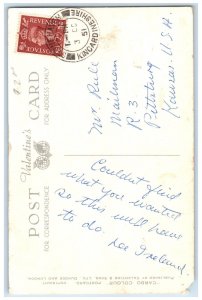 POSTAGE REVENUE
KINCARDINESHIRE
51
Mr Rule
Mailman
R 3
Pittsburg
Kansas. U.S.A.
POST CARD
Valentine's
FOR CORRESPONDENCE
FOR ADDRESS ONLY
Couldn't find
what you wanted
so this will have
to do.
"CARDO COLOUR" POSTCARD. COPYRIGHT
PUBLISHED BY VALENTINE & SONS, LTD., DUNDEE AND LONDON